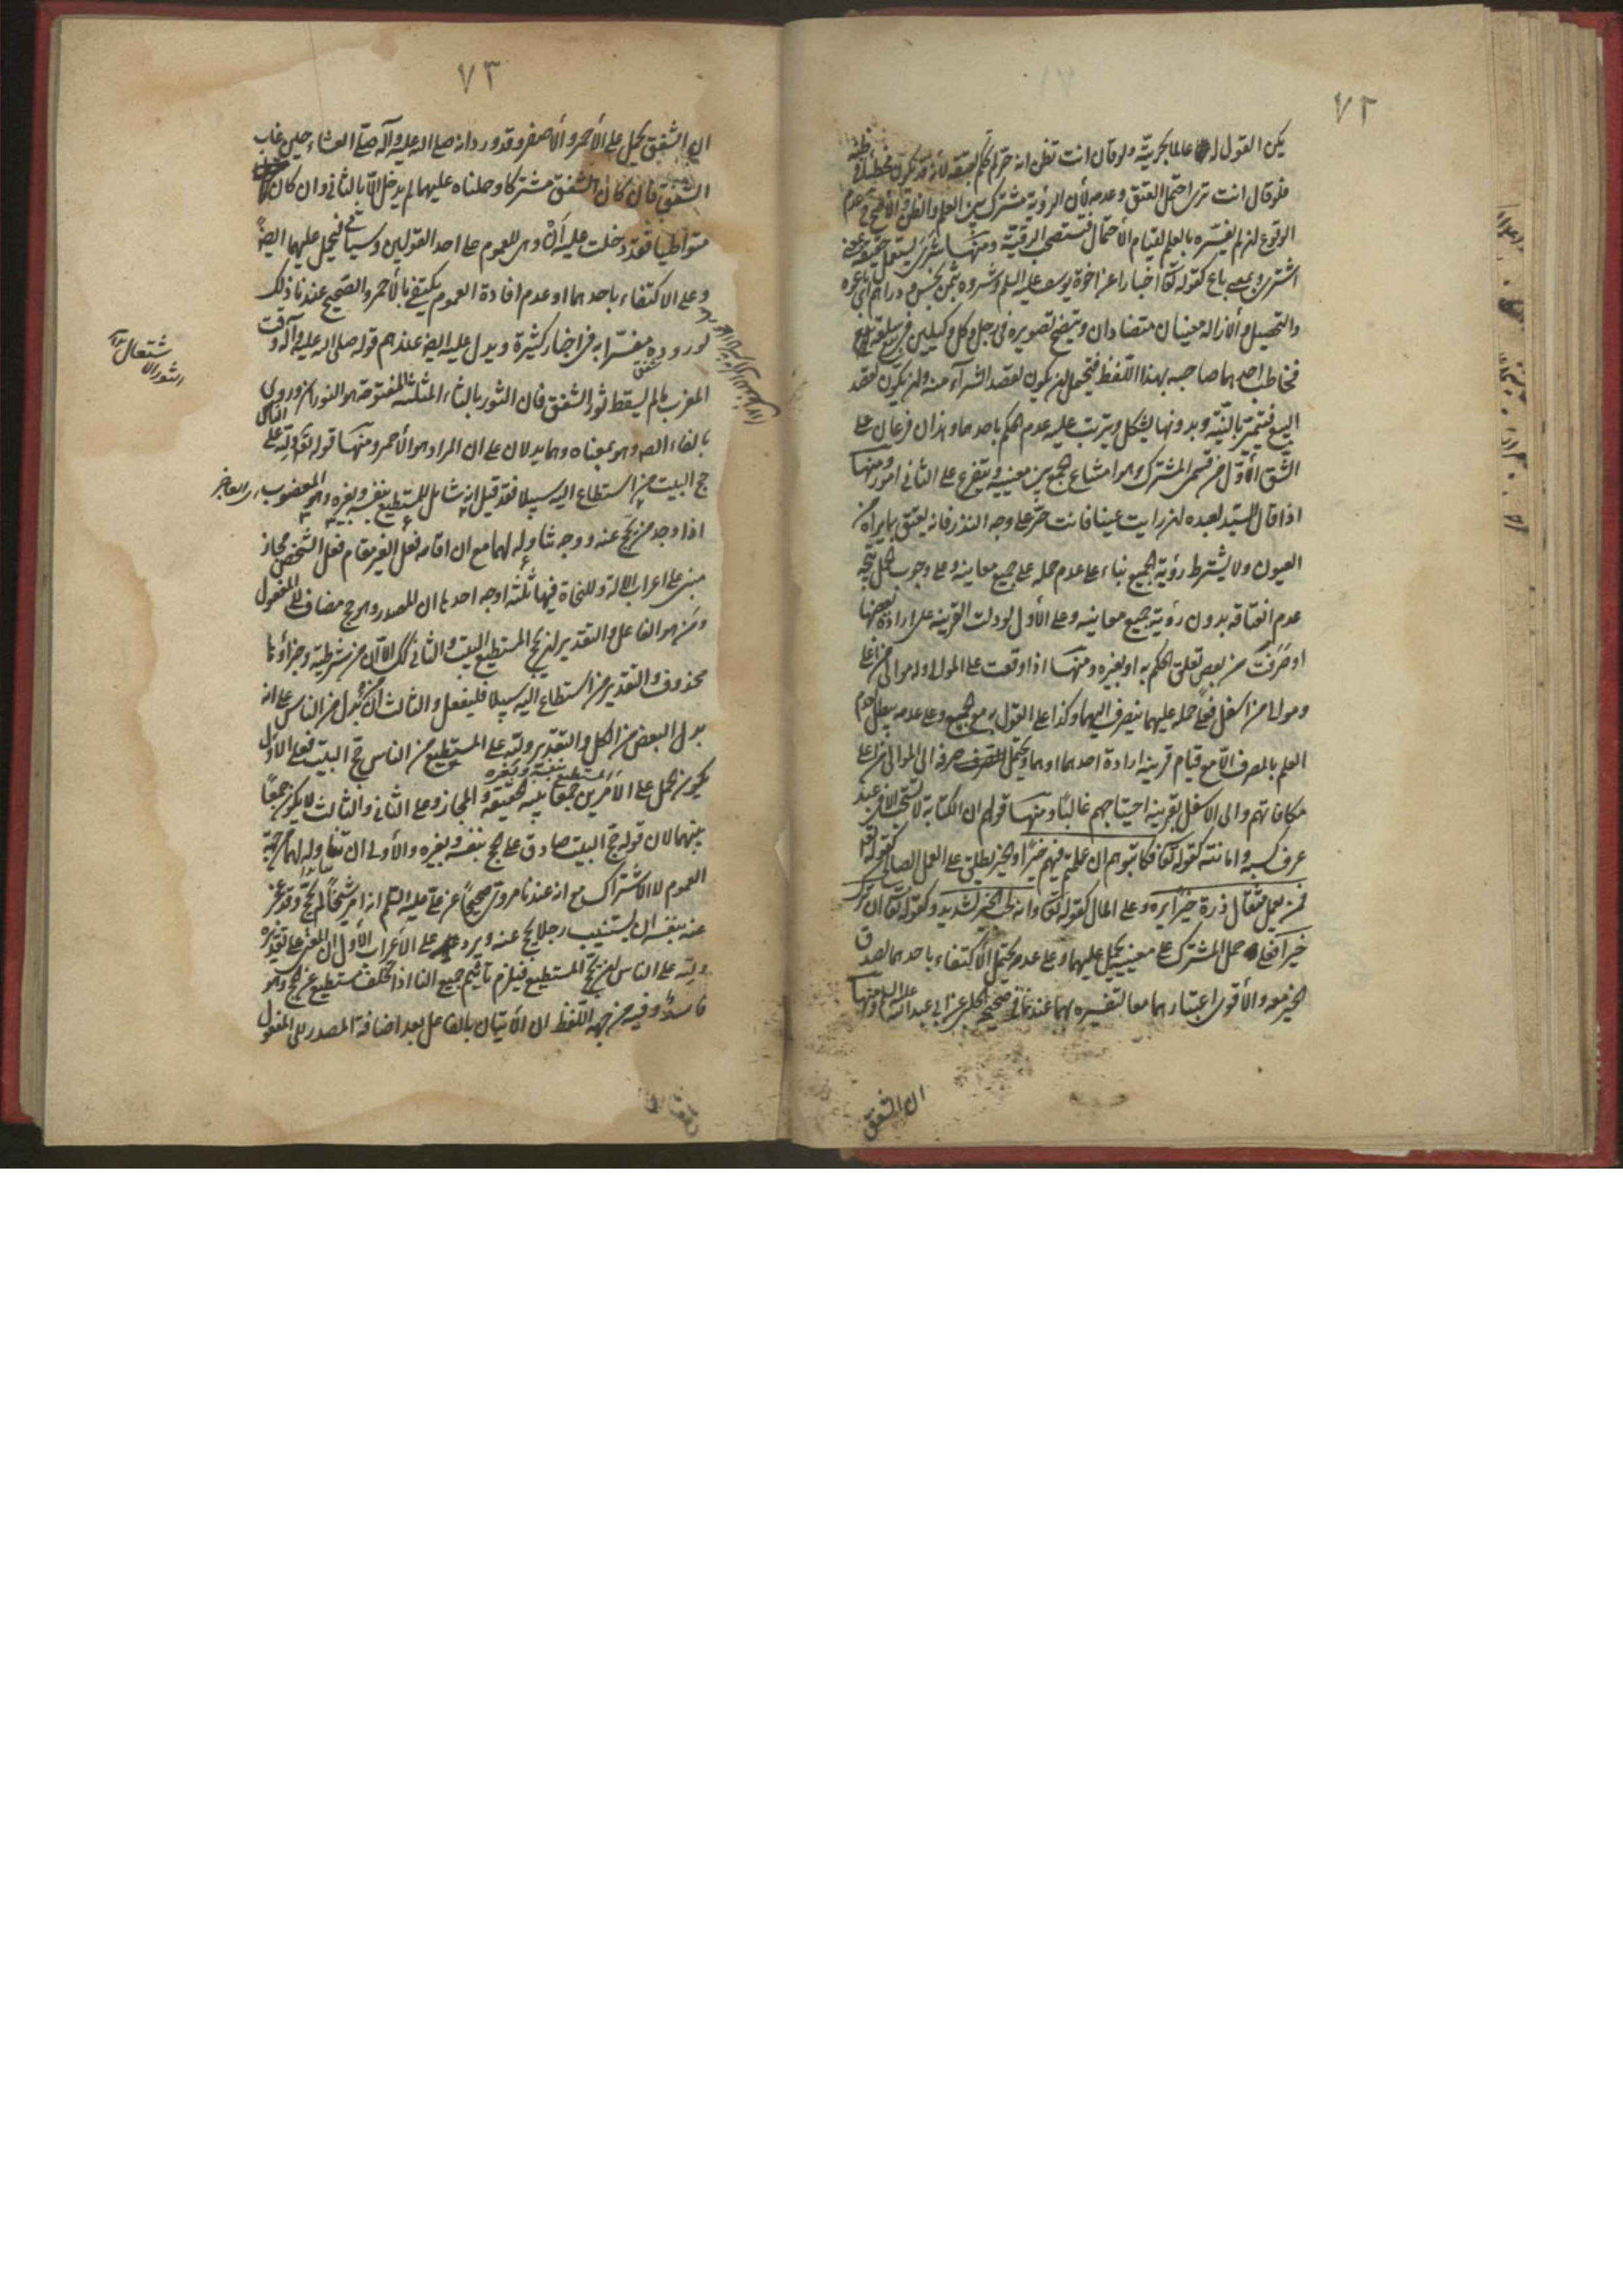 ٧٢
يكن القول له عالما بحريته ولو قال انت تظن انه حر لم نحكم بعتقه لأنه قد يكون مخطئا في ظنه
فلو قال انت ترى احتمل العتق وعدمه لأن الرؤية مشترك بين العلم والظن والأصح عدم
الوقوع ان لم يفسره بالعلم لقيام الأحتمال فيستصحب الرقية ومنها شرى يستعمل حقيقة بمعنى
اشترى وبمعنى باع كقوله تعالى اخبارا عن اخوة يوسف عليه السلم وشروه بثمن بخس دراهم اي باعوه
والتحصيل والأزاله معنيان متضادان ويتضح تصويره في رجل وكل وكيلين في بيع سلعة
فخاطب احدهما صاحبه بهذا اللفظ فيحتمل ان يكون لقصد الشرآء منه وان يكون لقصد
البيع فيتميز بالنية وبدونها يشكل ويترتب عليه عدم الحكم باحدهما وهذان فرعان على
الشق الأول من قسمي المشترك وهو امتناع الجمع بين معنييه ويتفرع على الثاني امور منها
اذا قال السيد لعبده ان رايت عينا فانت حر على وجه النذر فانه يعتق بما يراه من
العيون ولا يشترط رؤية الجميع بناء على عدم حمله على جميع معانيه وعلى وجوب الحمل يتجه
عدم انعتاقه بدون رؤية جميع معانيه وعلى الأول لو دلت القرينه على ارادة بعضها
او صرفت من بعض تعلق الحكم به او بغيره ومنها اذا وقعت على المولى وله موالي من اعلى
ومولى من اسفل فعلى حمله عليهما ينصرف اليهما وكذا على القول به مع الجمع وعلى عدمه يبطل لعدم
العلم بالمصرف الا مع قيام قرينه ارادة احدهما اوهما ويحتمل صرفه الى الموالي من اعلى
مكافاتهم والى الاسفل بقرينه احتياجهم غالبا ومنها قولهم ان الكتابة لا تستحب الا في عبد
عرف كسبه وامانته كقوله تعالى فكاتبوهم ان علمتم فيهم خيرا والخير يطلق على العمل الصالح كقوله تعالى
فمن يعمل مثقال ذرة خيرا يره وعلى المال كقوله تعالى وانه لحب الخير لشديد وكقوله تعالى ان ترك
خيرا فعلى حمل المشترك على معنييه يحمل عليهما وعلى عدمه يحتمل الأكتفاء باحدهما لصدق
الخير معه والأقوى اعتبارهما معا لتفسيره بهما عندنا في صحيح الحلبي عن ابي عبد الله عليه السلم ومنها
ان الشفق
٧٣
ان الشفق يحمل على الأحمر والأصفر وقد ورد انه صلى الله عليه وآله صلى العشاء حين غاب
الشفق فان كان الشفق مشتركا وحملناه عليهما لم يدخل الا بالثاني وان كان
متواطيا فقد دخلت عليه ال وهي للعموم على احد القولين وسياتي فيحمل عليهما ايضا
وعلى الاكتفاء باحدهما او عدم افادة العموم يكتفي بالأحمر والصحيح عندنا ذلك
لوروده مفسرا به في اخبار كثيرة ويدل عليه ايضا عندهم قوله صلى الله عليه وآله وقت
المغرب ما لم يسقط ثور الشفق فان الثور بالثاء المثلثه المفتوحة هو الثوران وروي
بالفاء ايضا وهو بمعناه وهما يدلان على ان المراد هو الأحمر ومنها قوله تعالى ولله على الناس
حج البيت من استطاع اليه سبيلا فقد قيل انه شامل للمستطيع بنفسه وبغيره وهو المعضوب اي العاجز
اذا وجد من يحج عنه ووجه تناوله لهما مع ان اقامه فعل الغير مقام فعل الشخص مجاز
مبني على اعراب الآية وللنحاة فيها ثلثه اوجه احدها ان المصدر وهو حج مضاف الى المفعول
ومن هو الفاعل والتقدير ان يحج المستطيع البيت والثاني كذلك الا ان من شرطية وجزاؤها
محذوف والتقدير من استطاع اليه سبيلا فليفعل والثالث ان من بدل من الناس على انه
بدل البعض من الكل والتقدير ولله على المستطيع من الناس حج البيت فعلى الأول
يكون الحمل على الأمرين المستطيع بنفسه وبغيره جمعا بين الحقيقة والمجاز وعلى الثاني والثالث لا يكون جمعا
بينهما لان قوله حج البيت صادق على حج بنفسه وبغيره والأولى ان تناوله لهما من جهة
العموم لا الاشتراك مع انه عندنا مروي صحيحا عن علي عليه السلم انه امر شيخا لم يحج وقد عجز
عنه بنفسه ان يستنيب رجلا يحج عنه ويرد على الأعراب الأول ان المعنى على تقديره
ولله على الناس ان يحج المستطيع فيلزم تأثيم جميع الناس اذا تخلف مستطيع عن الحج وهو
فاسد وفيه من جهة اللفظ ان الأتيان بالفاعل بعد اضافة المصدر الى المفعول
الثور الاشتعال